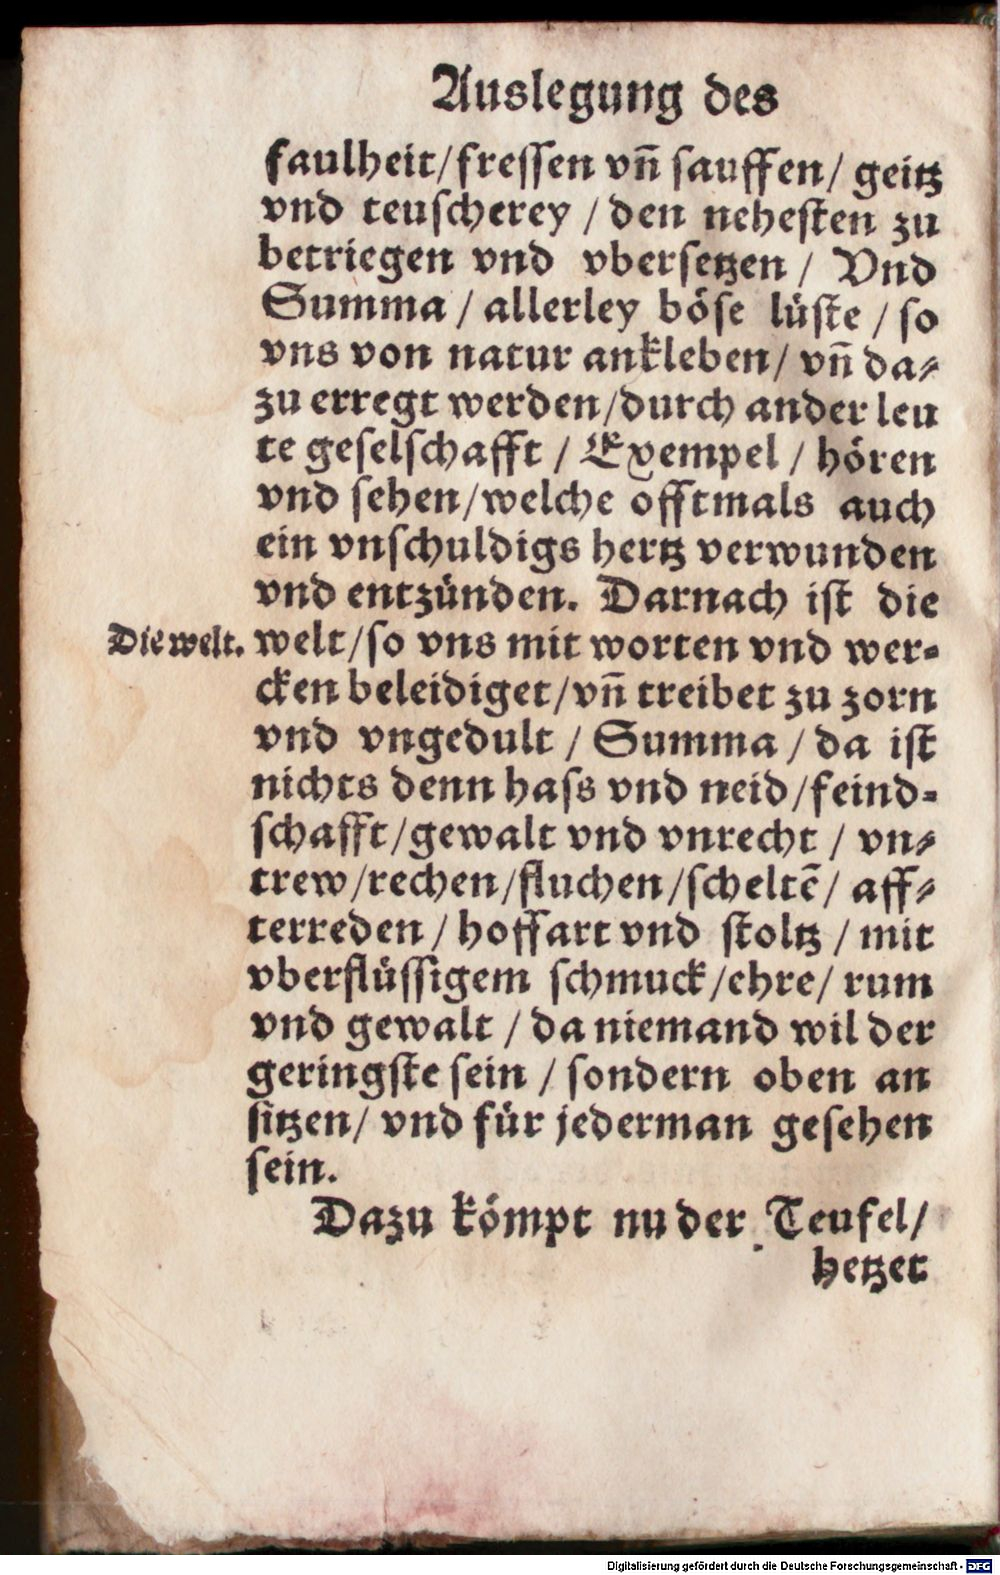 Auslegung des
faulheit/fressen vn̄ sauffen/ geitz
vnd teuscherey / den nehesten zu
betriegen vnd vbersetzen / Vnd
Summa / allerley böse lüste / so
vns von natur ankleben/ vn̄ da⸗
zu erregt werden/durch ander leu
te geselschafft / Exempel / hören
vnd sehen/welche offtmals auch
ein vnschuldigs hertz verwunden
vnd entzünden. Darnach ist die
Die welt. welt/so vns mit worten vnd wer⸗
cken beleidiget/vn̄ treibet zu zorn
vnd vngedult / Summa / da ist
nichts denn hass vnd neid/feind⸗
schafft/gewalt vnd vnrecht / vn⸗
trew/rechen/fluchen/scheltē/ aff⸗
terreden / hoffart vnd stoltz / mit
vberflüssigem schmuck/ehre/ rum
vnd gewalt / da niemand wil der
geringste sein / sondern oben an
sitzen/ vnd für jederman gesehen
sein.
Dazu kömpt nu der Teufel/
hetzet
Digitalisierung gefördert durch die Deutsche Forschungsgemeinschaft - DFG